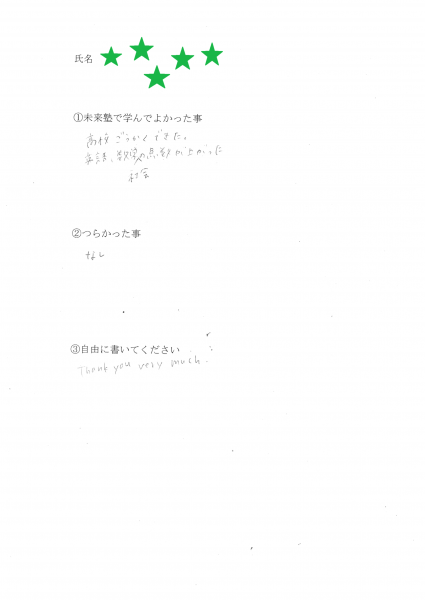 氏名
①未来塾で学んでよかった事
高校ごうかくできた。
英語、数学の点数が上がった
社会
②つらかった事
なし
③自由に書いてください
Thank you very much.